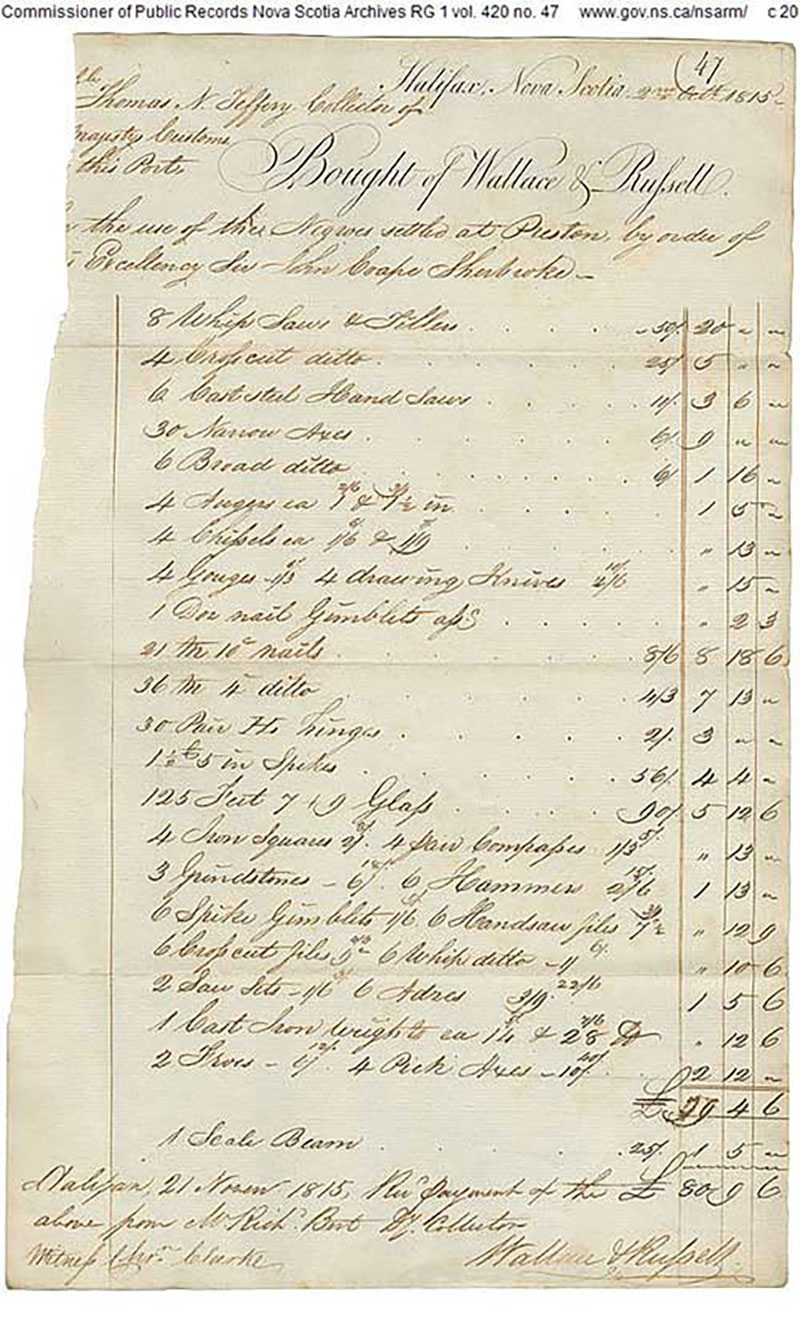 Commissioner of Public Records Nova Scotia Archives RG 1 vol. 420 no. 47 www.gov.ns.ca/nsarm/ c 20
47
Halifax, Nova Scotia 2nd Octr 1815
Thomas N Jeffery Collector of
majestys Customs
this Port
Bought of Wallace & Russell.
the use of the Negroes settled at Preston, by order of
Excellency Sir John Coape Sherbroke
8 Whip Saws & Tillers 50/ 20 " "
4 Crosscut ditto 25/ 5 " "
6 Cast steel Hand Saws 11/ 3 6 "
30 Narrow Axes 6/ 9 " "
6 Broad ditto 6/ 1 16 "
4 Augers ea & in 1 5 "
4 Chissels ea 1/6 & 1/9 " 13 "
4 Gouges 1/3 4 drawing Knives 2/6 " 15 "
1 Doz nail Gimblets assd " 2 3
21 m 10d nails 8/6 8 18 6
36 m 4d ditto 4/3 7 13 "
30 Pair Hs hinges 2/. 3 " "
1½ C 5 in Spikes 56/. 4 4 "
125 Feet 7 & 9 Glass 90/ 5 12 6
4 Iron Squares 2/. 4 pair Compasses 1/3 " 13 "
3 Grindstones 6/. 6 Hammers 2/6 1 13 "
6 Spike Gimblets 1/6 6 Handsaw files 7½ " 12 9
6 Crosscut files 9d 6 Whip ditto 1/ " 10 6
2 Saw Sets 1/6 6 Adzes 3/9 22/6 1 5 6
1 Cast Iron weights ea 14 & 28 " 12 6
2 Frows 6/. 12/. 4 Pick Axes 10/ 40/ 2 12 "
£ 79 4 6
1 Scale Beam 25/. 1 5 "
£ 80 9 6
Halifax, 21 Novem 1815, Recd payment of the
above from Mr Richd Best Dy. Collector
Witness Clarke Wallace & Russell